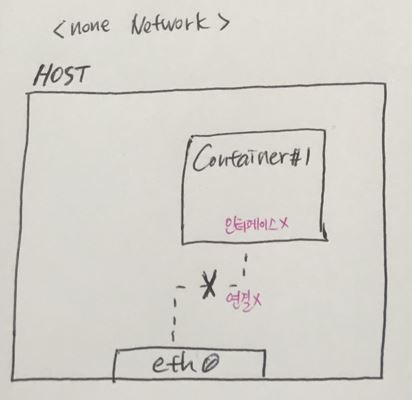 <none Network>
HOST
Container#1
인터페이스X
X
연결X
eth0